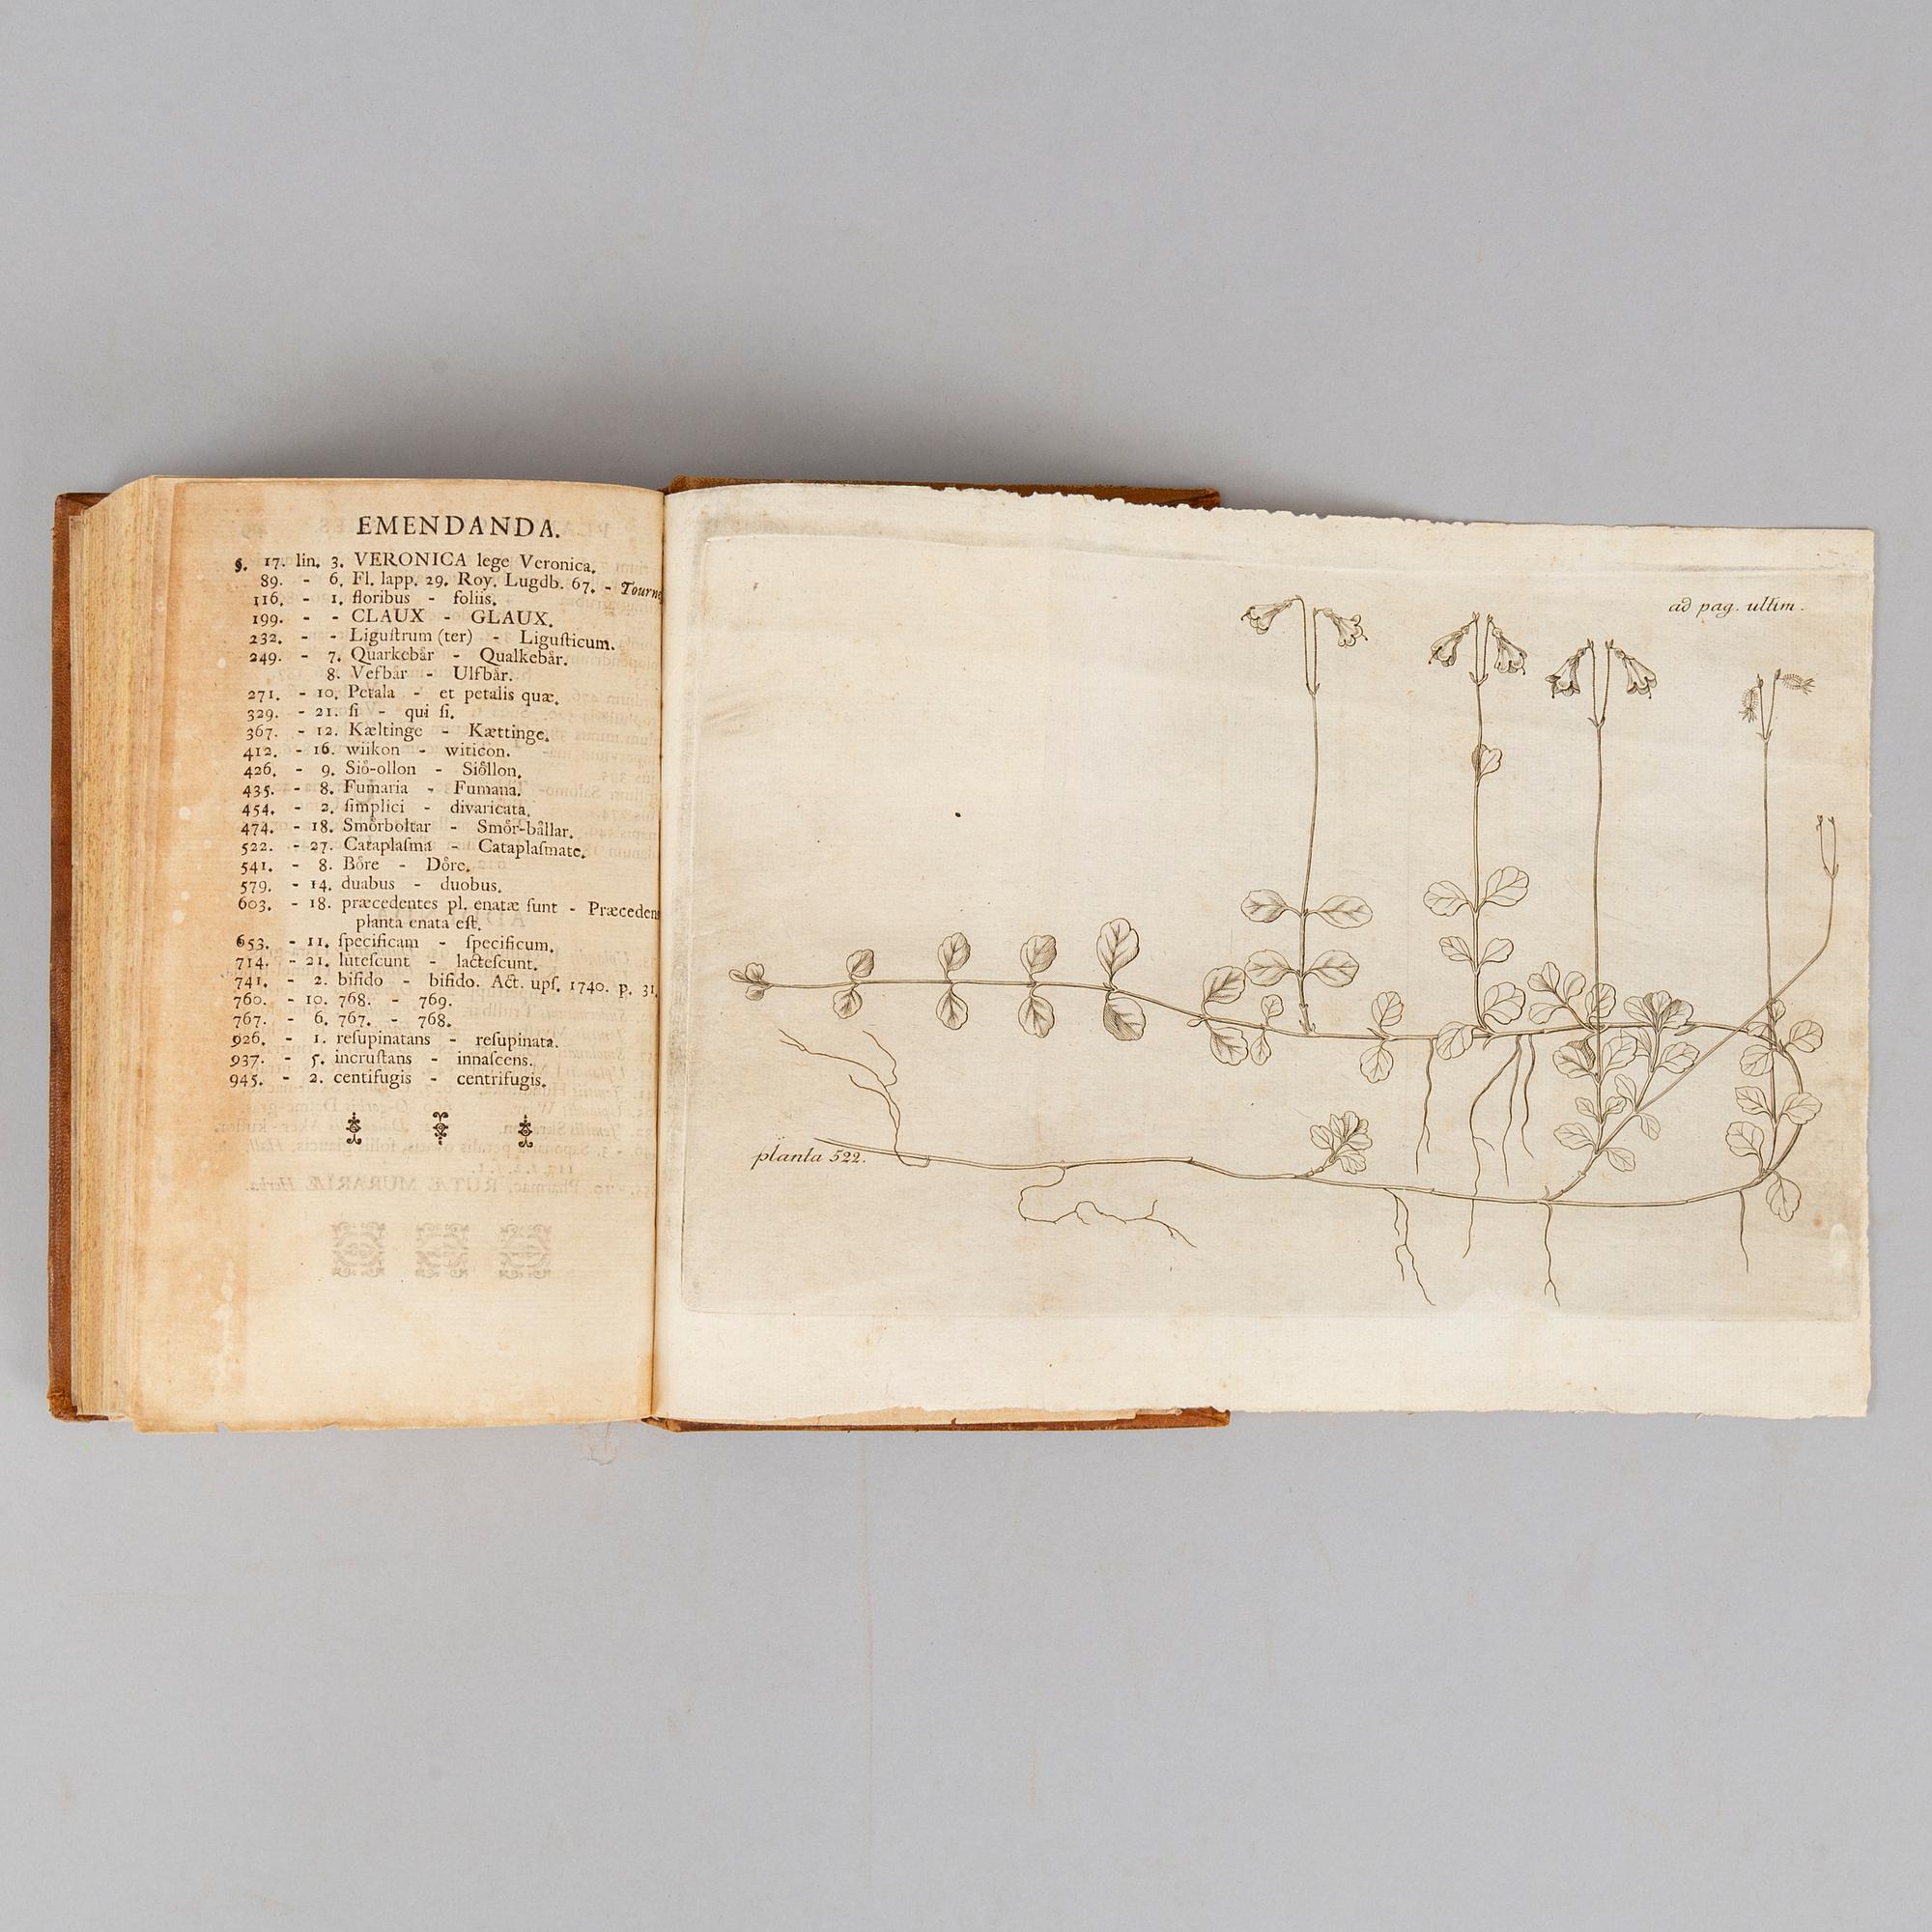 EMENDANDA.
§. 17. lin. 3. VERONICA lege Veronica.
89. - 6. Fl. lapp. 29. Roy. Lugdb. 67. - Tourn
116. - 1. floribus - foliis.
199. - - CLAUX - GLAUX.
232. - - Liguſtrum (ter) - Liguſticum.
249. - 7. Quarkebår - Qualkebår.
8. Vefbår - Ulfbår.
271. - 10. Petala - et petalis quæ.
329. - 21. ſi - qui ſi.
367. - 12. Kæltinge - Kættinge.
412. - 16. wiikon - witicon.
426. - 9. Siö-ollon - Siöllon.
435. - 8. Fumaria - Fumana.
454. - 2. ſimplici - divaricata.
474. - 18. Smörboltar - Smör-bållar.
522. - 27. Cataplaſma - Cataplaſmate.
541. - 8. Böre - Döre.
579. - 14. duabus - duobus.
603. - 18. præcedentes pl. enatæ ſunt - Præceden
planta enata eſt.
653. - 11. ſpecificam - ſpecificum.
714. - 21. luteſcunt - lacteſcunt.
741. - 2. bifido - bifido. Act. upſ. 1740. p. 31.
760. - 10. 768. - 769.
767. - 6. 767. - 768.
926. - 1. reſupinatans - reſupinata.
937. - 5. incruſtans - innaſcens.
945. - 2. centifugis - centrifugis.
ad pag. ultim.
planta 522.